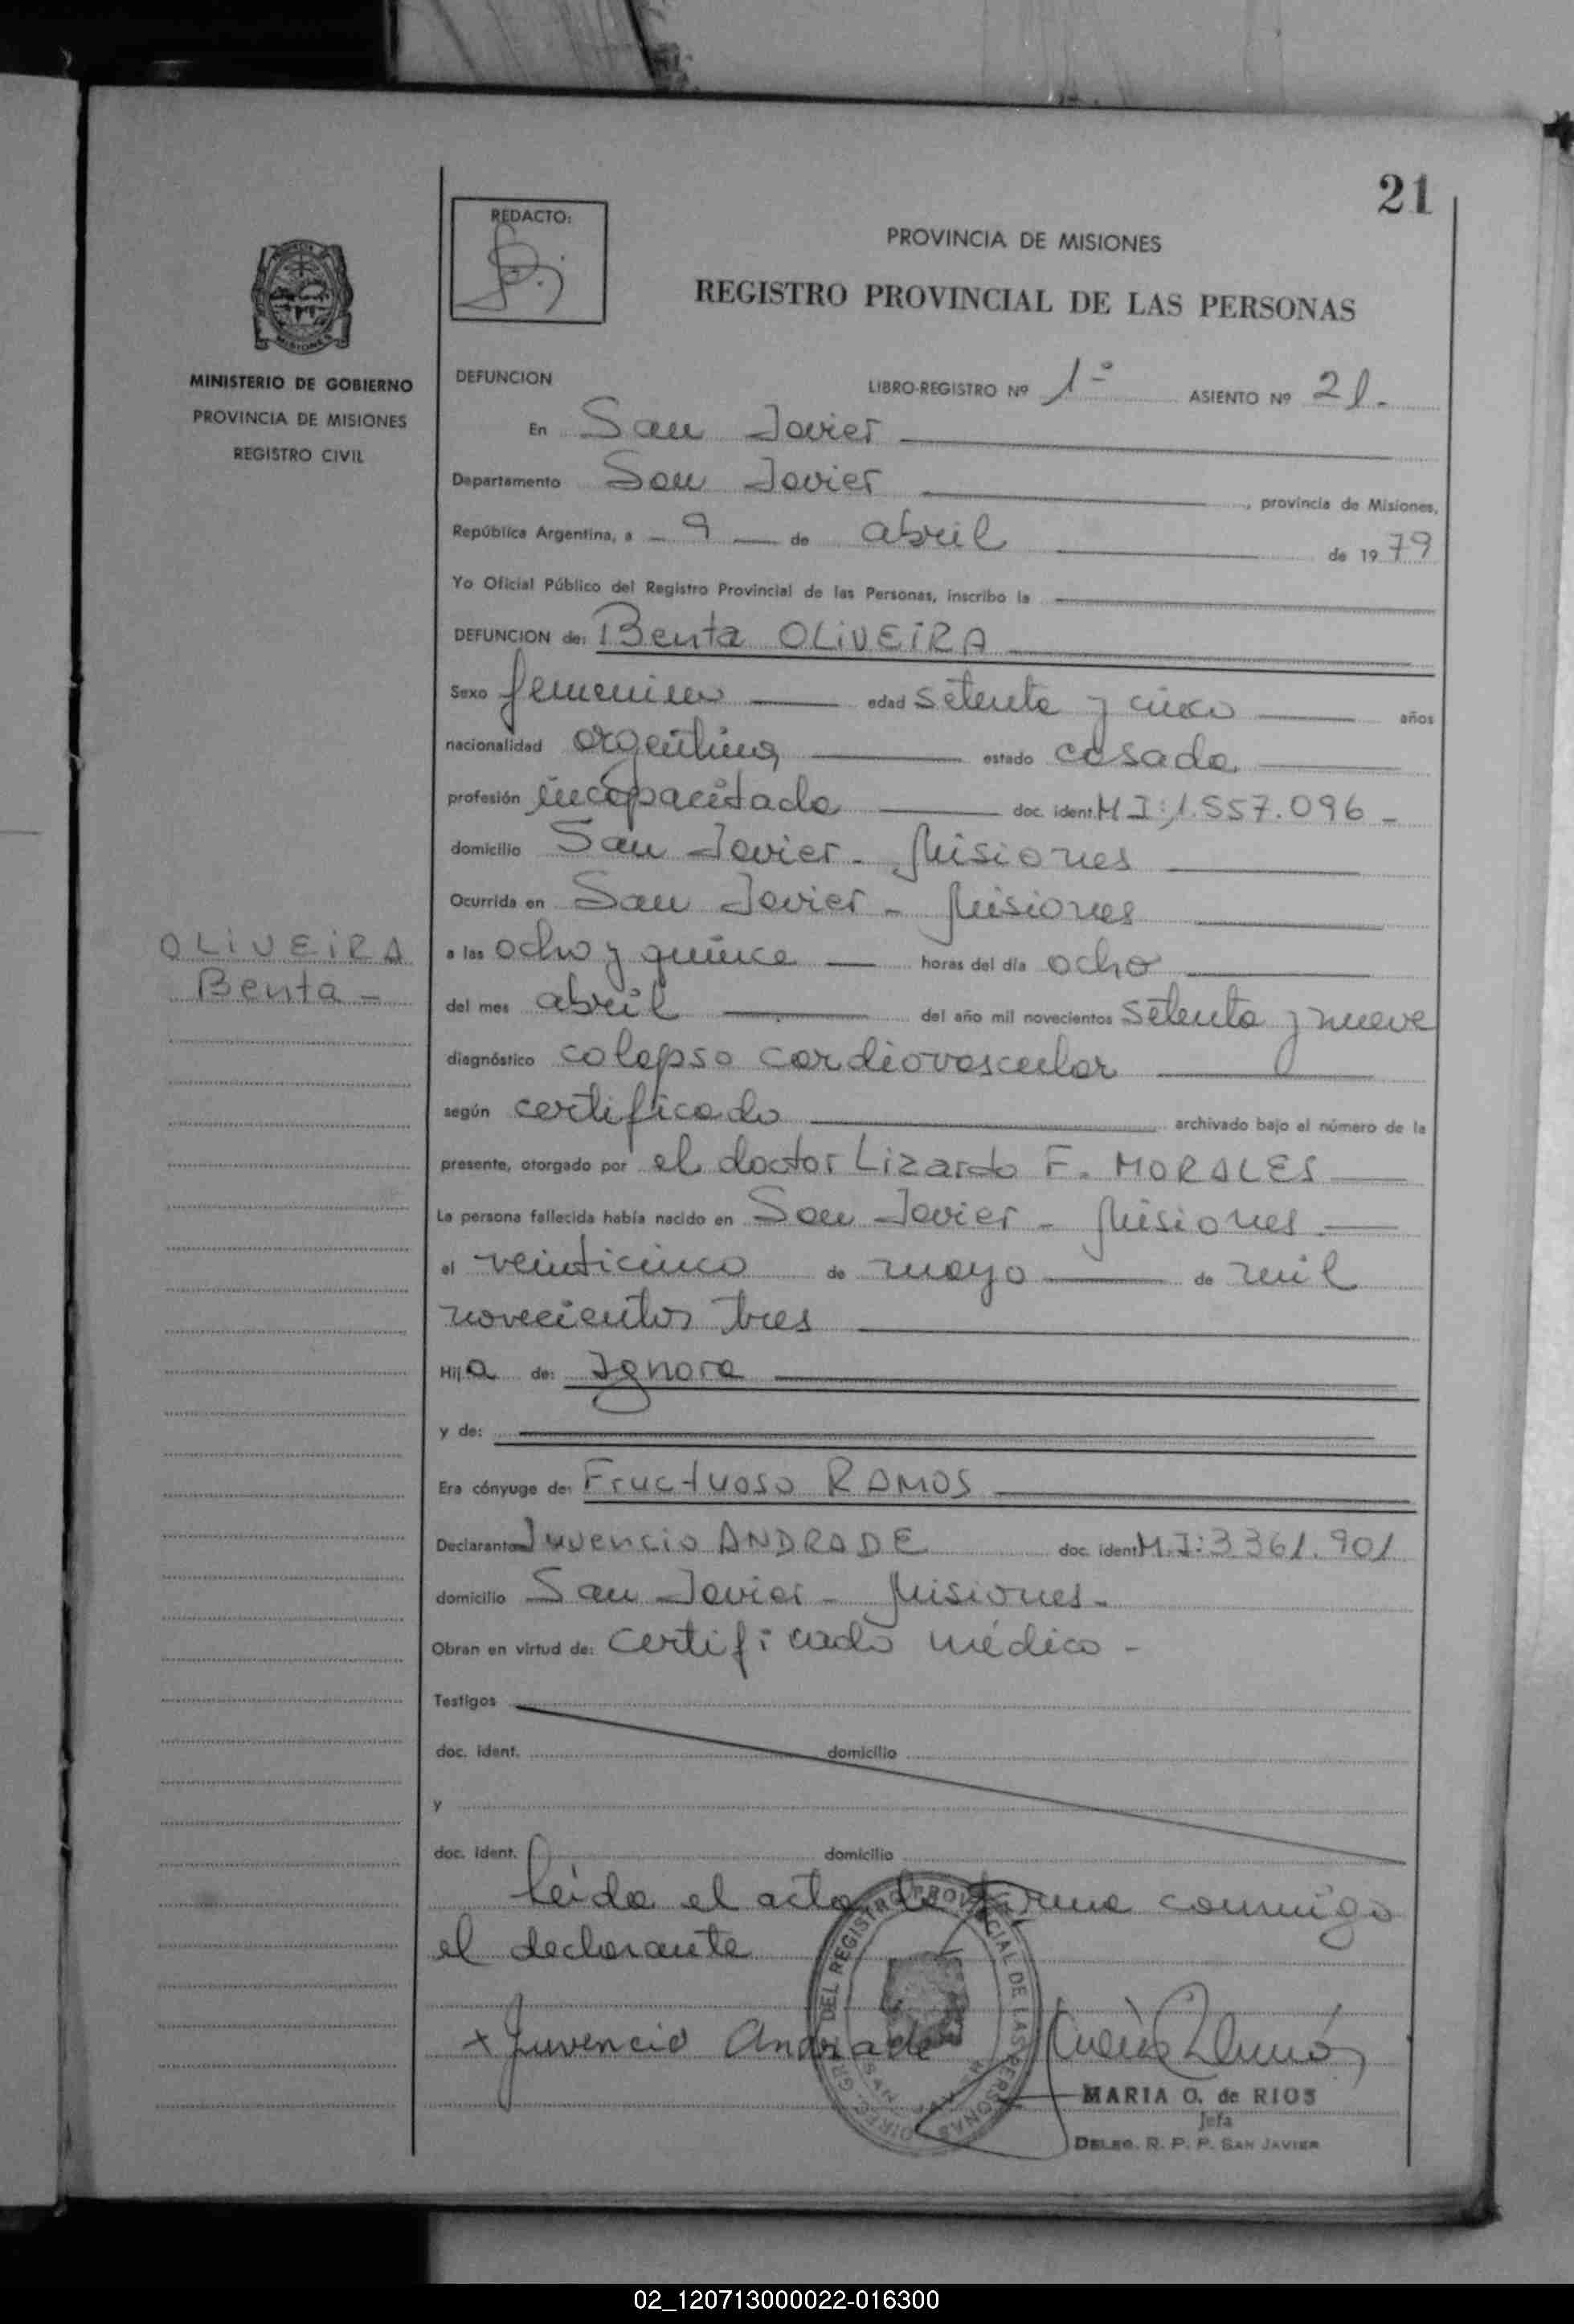 21
REDACTO:
PROVINCIA DE MISIONES
REGISTRO PROVINCIAL DE LAS PERSONAS
MISIONES
MINISTERIO DE GOBIERNO
PROVINCIA DE MISIONES
REGISTRO CIVIL
DEFUNCION LIBRO-REGISTRO Nº 1º ASIENTO Nº 21.
En San Javier
Departamento San Javier, provincia de Misiones,
República Argentina, a 9 de abril de 1979
Yo Oficial Público del Registro Provincial de las Personas, inscribo la
DEFUNCION de: Benta OLIVEIRA
Sexo femenino edad setenta y cinco años
nacionalidad argentina estado casada
profesión incapacitada doc. ident. M I: 1.557.096 -
domicilio San Javier - Misiones
Ocurrida en San Javier - Misiones
OLIVEIRA
Benta -
a las ocho y quince horas del día ocho
del mes abril del año mil novecientos setenta y nueve
diagnóstico colapso cardiovascular
según certificado archivado bajo el número de la
presente, otorgado por el doctor Lizardo F. MORALES
La persona fallecida había nacido en San Javier - Misiones
el veinticinco de mayo de mil
novecientos tres
Hija de: Ignora
y de:
Era cónyuge de: Fructuoso RAMOS
Declarante Juvencio ANDRADE doc. ident. M.I: 3361.901
domicilio San Javier - Misiones -
Obran en virtud de: certificado médico -
Testigos
doc. ident. domicilio
y
doc. ident. domicilio
Leída el acta la firma conmigo
el declarante
x Juvencio Andrade
DEL REGISTRO PROVINCIAL DE LAS PERSONAS
MARIA O. de RIOS
Jefa
DELEG. R. P. P. SAN JAVIER
02_120713000022-016300